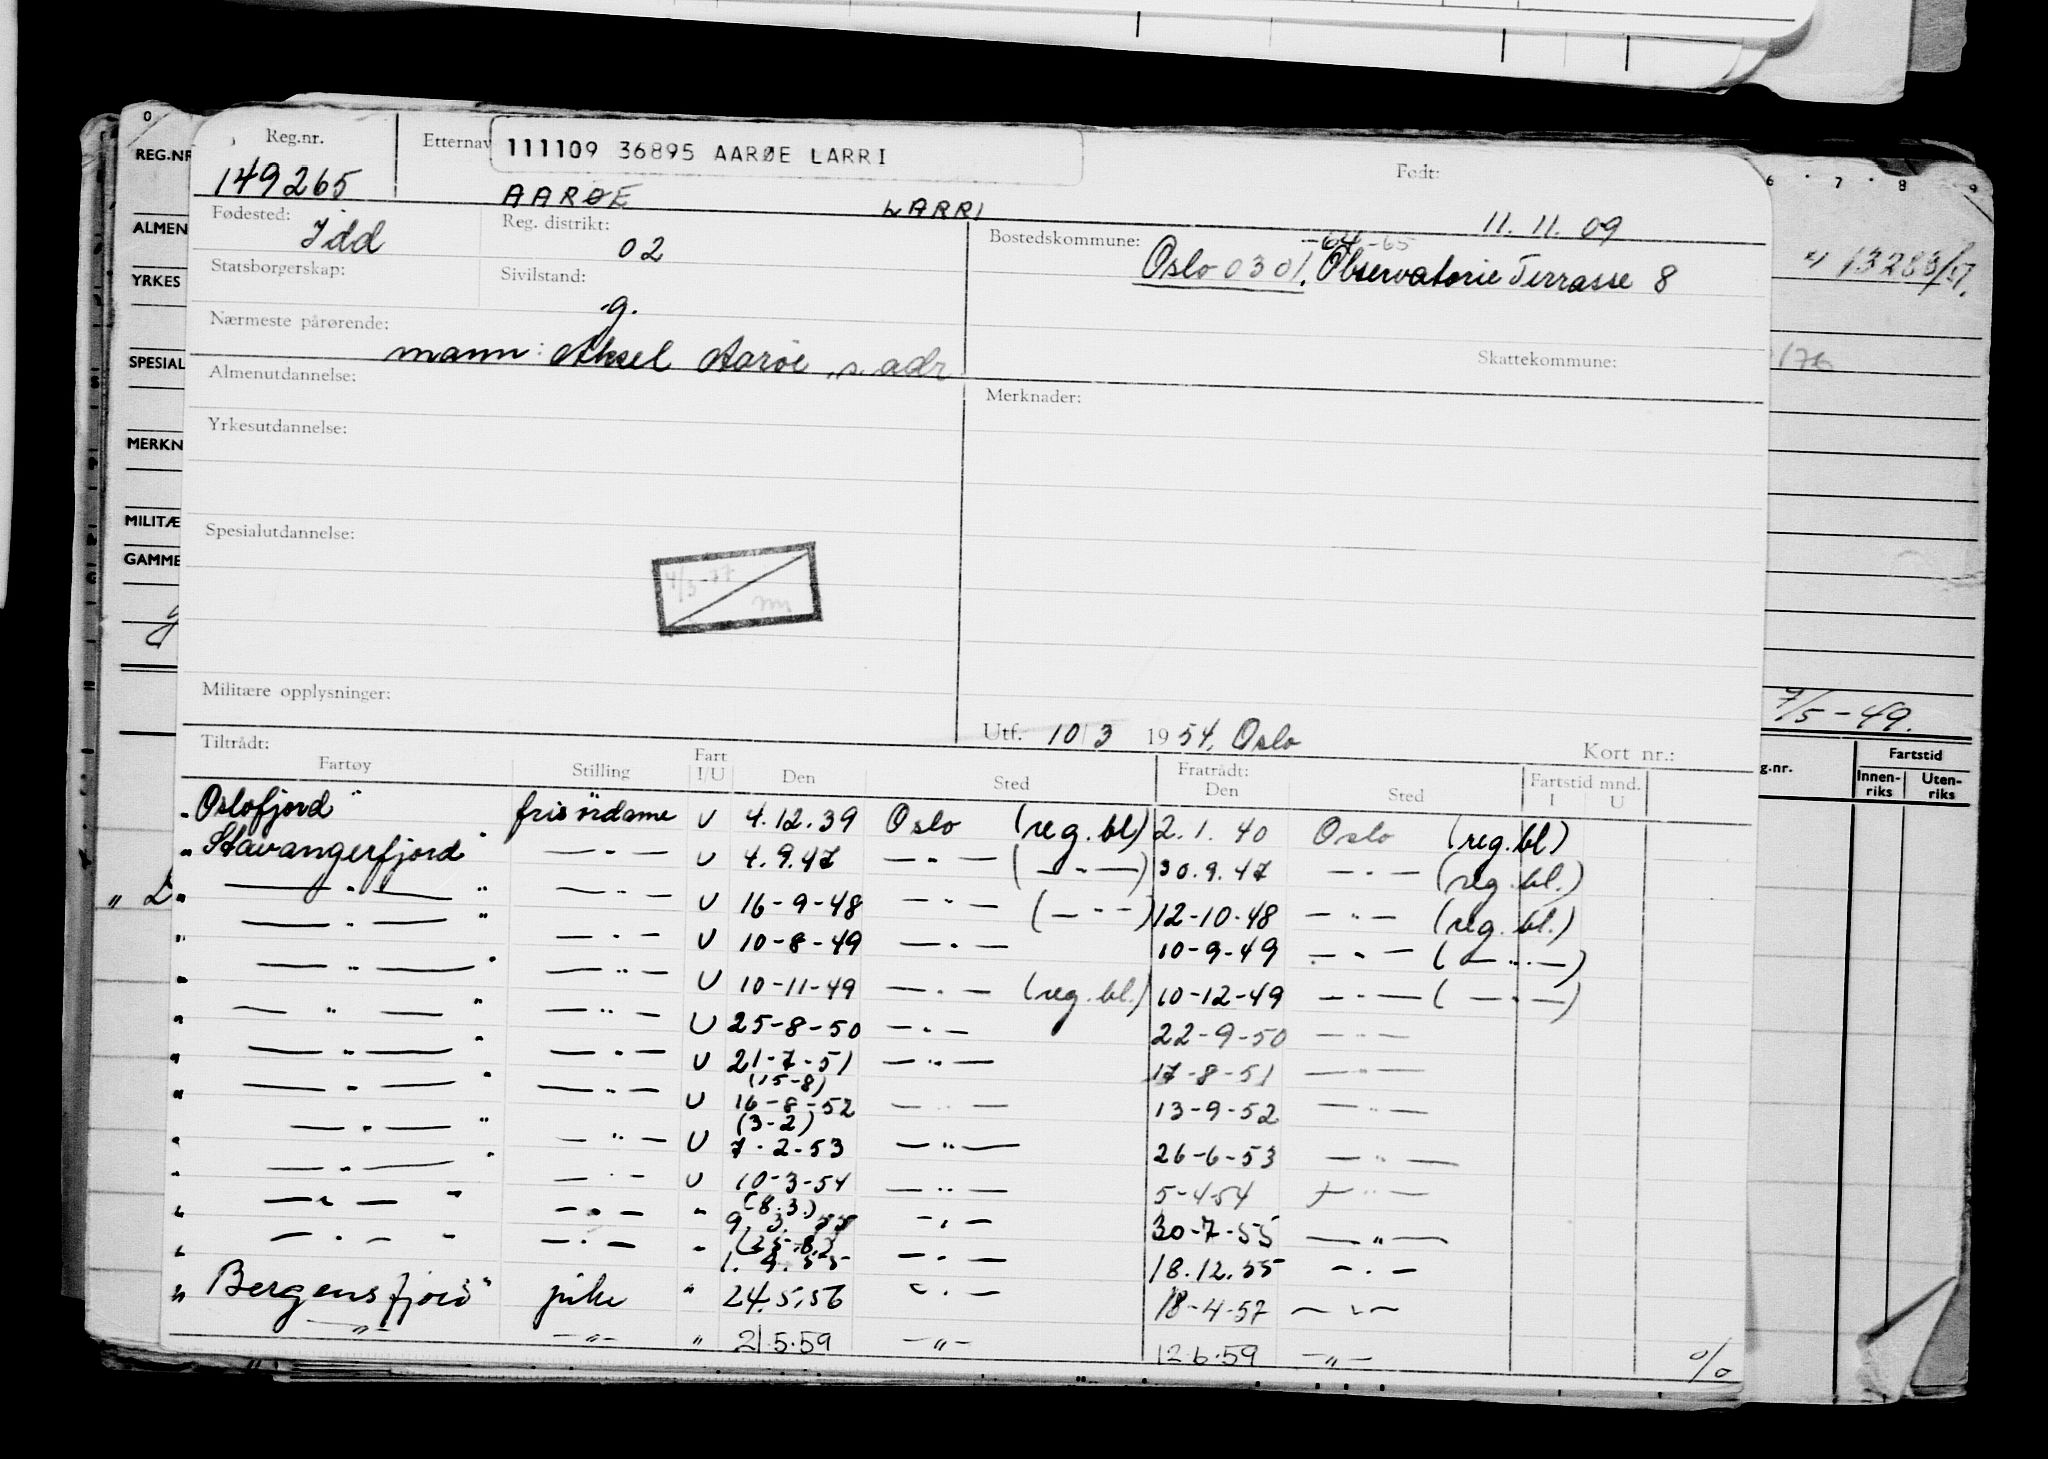 Reg.nr. Etternav 111109 36895 AARØE LARRI Født:
149265 AARØE LARRI 11.11.09
Fødested: Idd Reg. distrikt: 02 Bostedskommune: -64-65
Oslo 0301. Observatorie Terrasse 8
Statsborgerskap: Sivilstand: g.
Nærmeste pårørende: mann: Aksel Aarøe, s. adr Skattekommune:
Almenutdannelse: Merknader:
Yrkesutdannelse:
Spesialutdannelse:
4/3-77
Militære opplysninger:
Utf. 10/3 1954, Oslo Kort nr.:
Tiltrådt: Fratrådt: Fartstid mnd.
Fartøy Stilling Fart I/U Den Sted Den Sted I U
"Oslofjord" frisørdame U 4.12.39 Oslo (reg.bl) 2.1.40 Oslo (reg.bl)
"Stavangerfjord" —"— U 4.9.47 —"— (—"—) 30.9.47 —"— (reg.bl.)
" —"— " —"— U 16-9-48 —"— (—"—) 12-10-48 —"— (reg.bl.)
" —"— " —"— U 10-8-49 —"— 10-9-49 —"— (—"—)
" —"— " —"— U 10-11-49 —"— (reg.bl.) 10-12-49 —"— (—"—)
" —"— " —"— U 25-8-50 —"— 22-9-50 —"—
" —"— " —"— U 21-7-51 —"— 17-8-51 —"—
(15-8)
" —"— " —"— U 16-8-52 —"— 13-9-52 —"—
(3-2)
" —"— " —"— U 7-2-53 —"— 26-6-53 —"—
" —"— " —"— U 10-3-54 —"— 5-4-54 —"—
(8.3.)
" —"— " —"— " 9.3.55 —"— 30-7-55 —"—
(25.8.)
" —"— " —"— " 1.9.55 —"— 18.12.55 —"—
"Bergensfjord" pike " 24.5.56 —"— 18-4-57 —"—
—"— —"— " 21.5.59 —"— 12.6.59 —"—
%
0
REG.NR
ALMEN
YRKES
SPESIAL
MERKN
MILITÆ
GAMME
6 7 8 9
13283/51.
7/5-49.
g.nr. Fartstid
Innenriks Utenriks